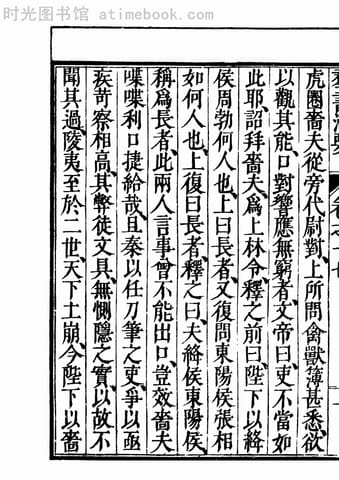 时光图书馆 · atimebook.com
虎圈嗇夫從旁代尉對、上所問禽獸簿甚悉、欲
以觀其能、口對響應無窮者、文帝曰、吏不當如
此耶、詔拜嗇夫爲上林令、釋之前曰、陛下以絳
侯周勃何人也、上曰、長者、又復問東陽侯張相
如何人也、上復曰、長者、釋之曰、夫絳侯東陽侯、
稱爲長者、此兩人言事曾不能出口、豈效嗇夫
喋喋利口捷給哉、且秦以任刀筆之吏、爭以亟
疾苛察相高、其弊徒文具、無惻隱之實、以故不
聞其過、陵夷至於二世、天下土崩、今陛下以嗇